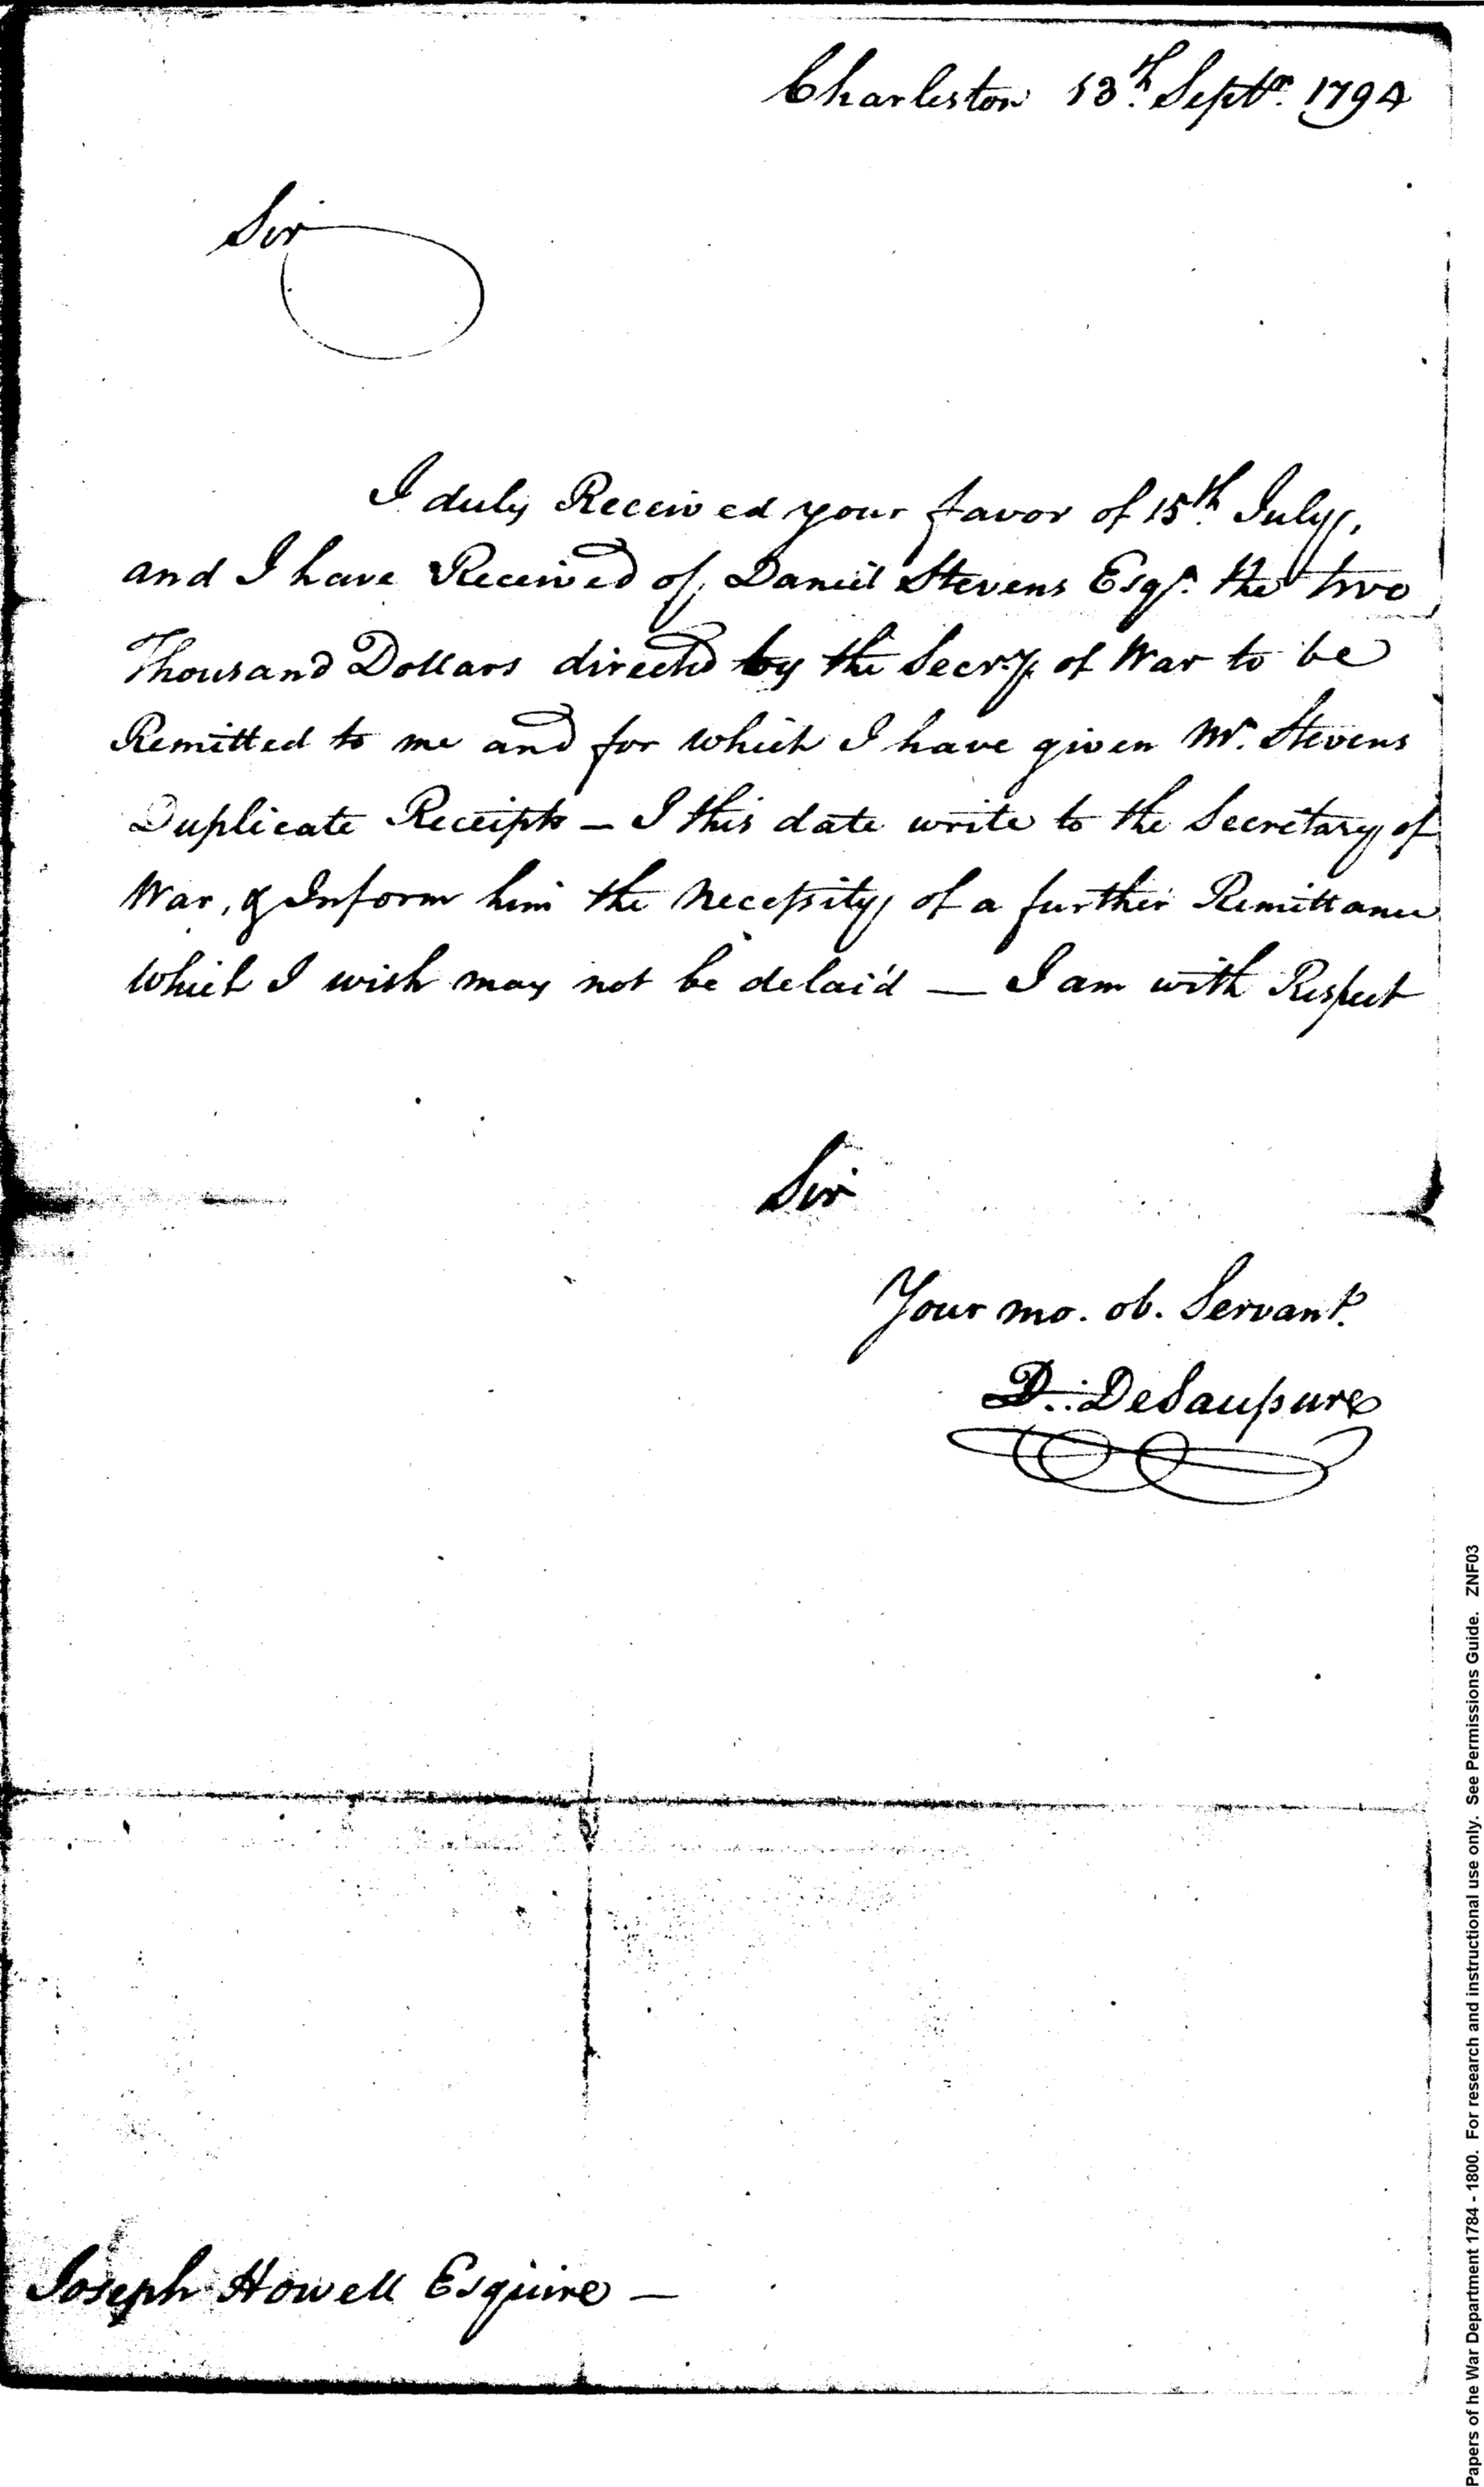 Charleston 13th. Septr. 1794
Sir
I duly Received your favor of 15th. July,
and I have Received of Daniel Stevens Esqr. the two
Thousand Dollars directed by the Secry. of War to be
Remitted to me and for which I have given Mr. Stevens
Duplicate Receipts — I this date write to the Secretary of
War, & Inform him the necessity of a further Remittance
which I wish may not be delai'd — I am with Respect
Sir
Your mo. ob. Servant.
D. DeSaussure
Joseph Howell Esquire —
Papers of he War Department 1784 - 1800. For research and instructional use only. See Permissions Guide. ZNF03